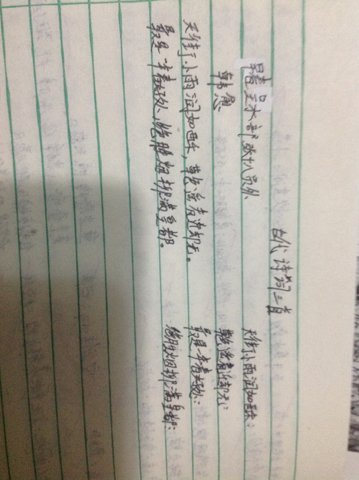 古代诗词三首
早春呈水部张十八员外
韩愈
天街小雨润如酥,草色遥看近却无。
最是一年春好处,绝胜烟柳满皇都。
天街小雨润如酥:
草色遥看近却无:
最是一年春好处:
绝胜烟柳满皇都: